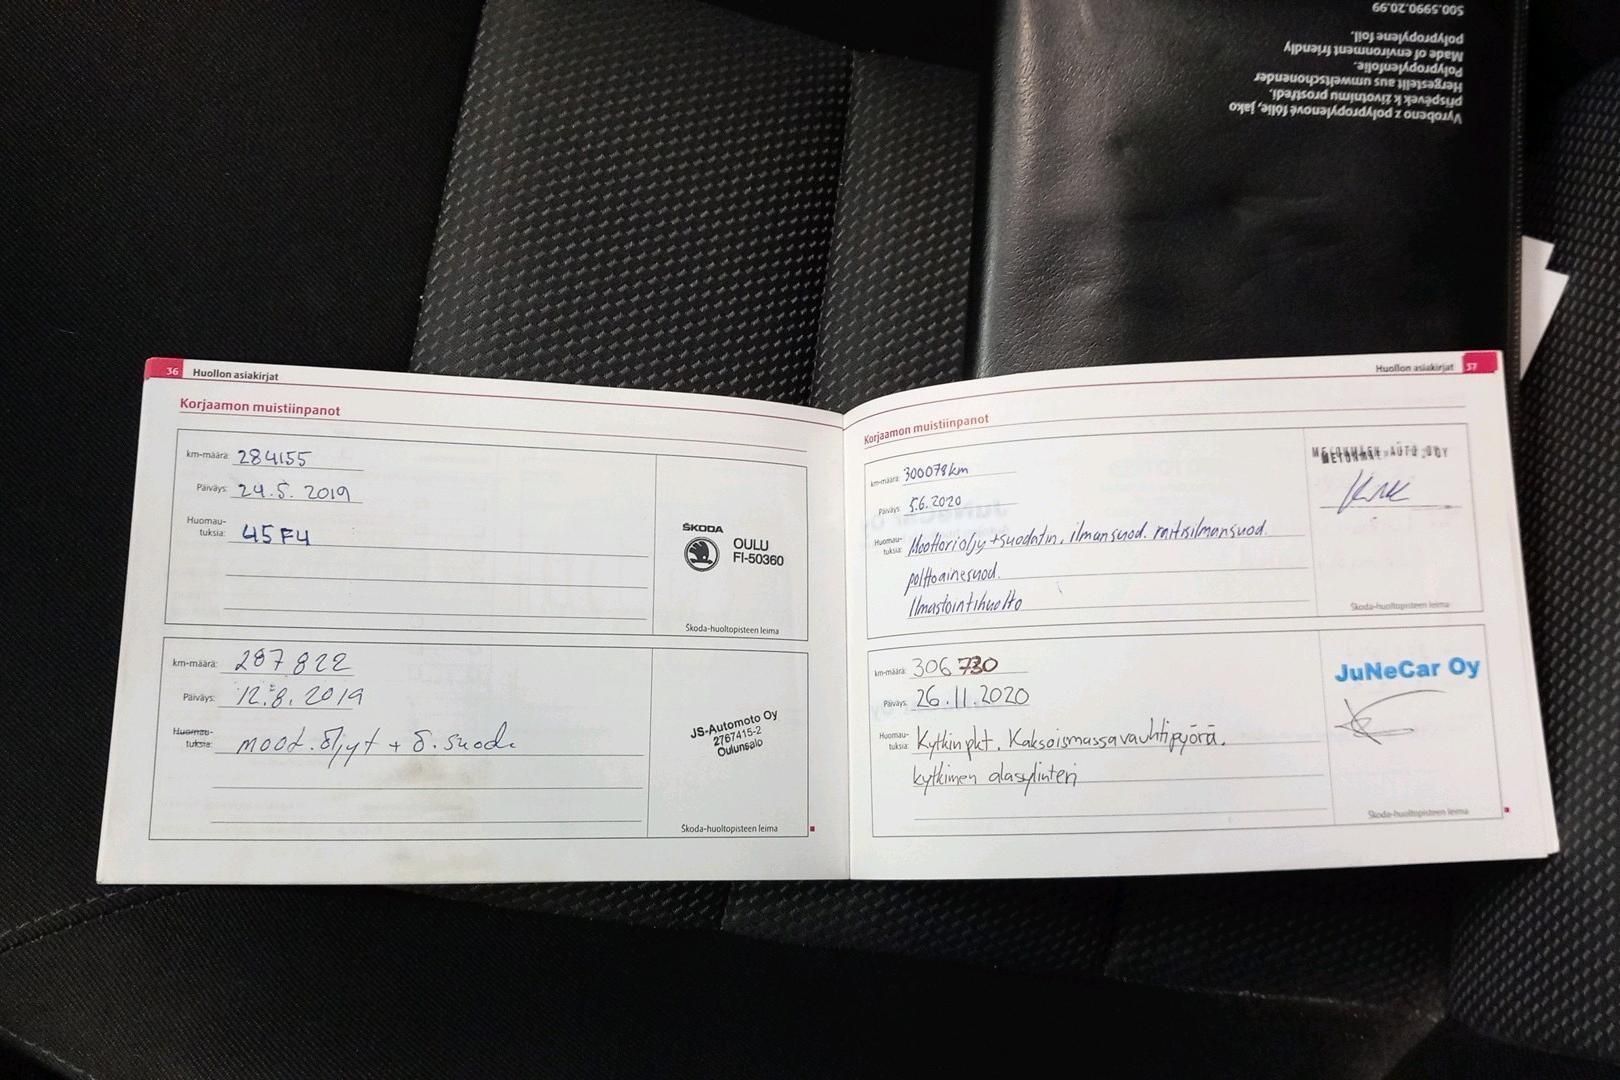 S00.5990.20.99
polypropylene foil.
Made of environment friendly
Polypropylenfolie.
Hergestellt aus umweltschonender
příspěvek k životnímu prostředí.
Vyrobeno z polypropylenové fólie, jako
36 Huollon asiakirjat
Korjaamon muistiinpanot
km-määrä: 284155
Päiväys: 24.5. 2019
Huomau-
tuksia: 45F4
ŠKODA
OULU
FI-50360
Škoda-huoltopisteen leima
km-määrä: 287 822
Päiväys: 12.8. 2019
Huomau-
tuksia: moot.öljyt + ö.suod.
JS-Automoto Oy
2767415-2
Oulunsalo
Škoda-huoltopisteen leima
Huollon asiakirjat 37
Korjaamon muistiinpanot
km-määrä: 300078km
Päiväys: 5.6.2020
Huomau-
tuksia: Moottoriöljy+suodatin, ilmansuod. raitisilmansuod.
polttoainesuod.
Ilmastointihuolto
AUTO OY
Škoda-huoltopisteen leima
km-määrä: 306 730
Päiväys: 26.11.2020
Huomau-
tuksia: Kytkin pkt. Kaksoismassavauhtipyörä,
kytkimen alasylinteri
JuNeCar Oy
Škoda-huoltopisteen leima